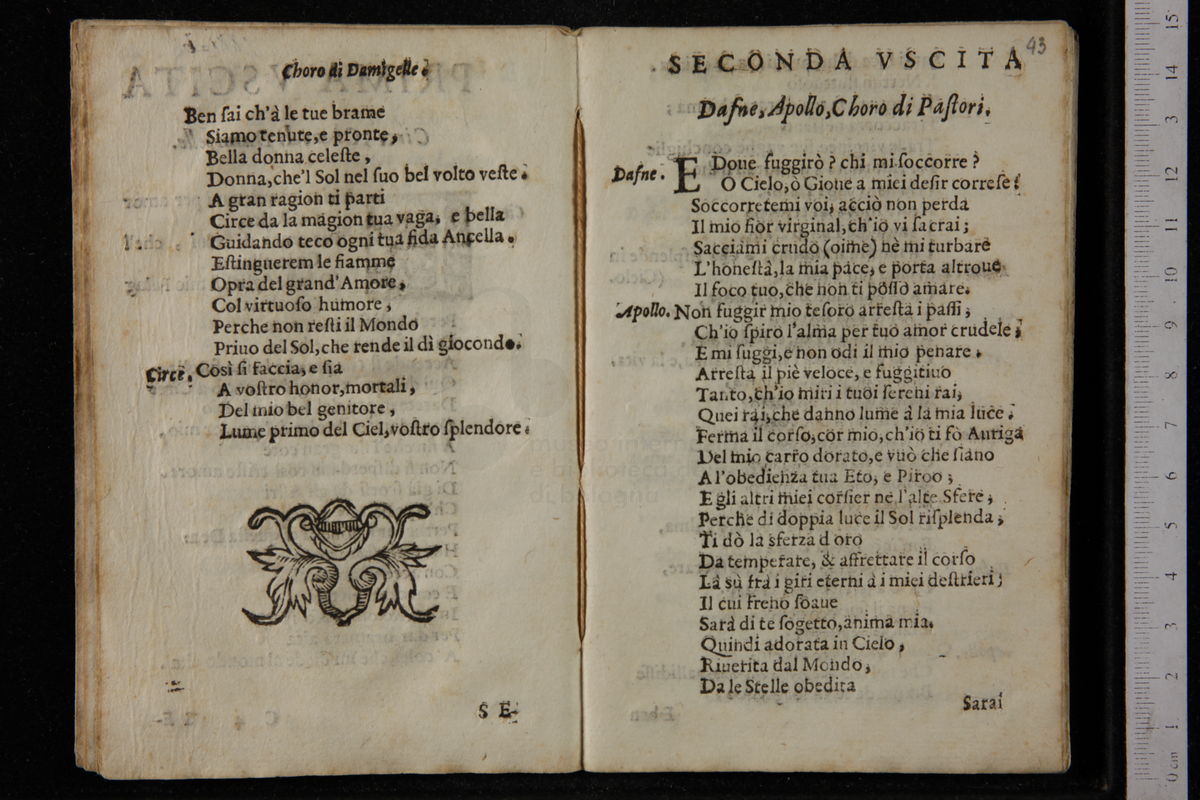 Choro di Damigelle.
Ben ſai ch'à le tue brame
Siamo tenute, e pronte,
Bella donna celeſte,
Donna, che'l Sol nel ſuo bel volto veſte.
A gran ragion ti parti
Circe da la magion tua vaga, e bella
Guidando teco ogni tua fida Ancella.
Eſtinguerem le fiamme
Opra del grand'Amore,
Col virtuoſo humore,
Perche non reſti il Mondo
Priuo del Sol, che rende il dì giocondo.
Circe. Così ſi faccia, e ſia
A voſtro honor, mortali,
Del mio bel genitore,
Lume primo del Ciel, voſtro ſplendore.
S E-
93
SECONDA VSCITA
Dafne, Apollo, Choro di Paſtori.
Dafne. E Doue fuggirò? chi mi ſoccorre?
O Cielo, ò Gioue a miei deſir correſe!
Soccorretemi voi, acciò non perda
Il mio fior virginal, ch'io vi ſacrai;
crudo (oime) nè mi turbare
L'honeſtà, la mia pace, e porta altroue
Il foco tuo, che non ti poſſo amare.
Apollo. Non fuggir mio teſoro arreſta i paſſi,
Ch'io ſpiro l'alma per tuo amor crudele;
E mi fuggi, e non odi il mio penare.
Arreſta il piè veloce, e fuggitiuo
Tanto, ch'io miri i tuoi ſereni rai,
Quei rai, che danno lume à la mia luce.
Ferma il corſo, cor mio, ch'io ti fò Auriga
Del mio carro dorato, e vuò che ſiano
A l'obedienza tua Eto, e Piroo;
E gli altri miei corſier ne l'alte Sfere,
Perche di doppia luce il Sol riſplenda,
Ti dò la sferza d oro
Da temperare, & affrettare il corſo
Là sù frà i giri eterni à i miei deſtrieri;
Il cui freno ſoaue
Sarà di te ſogetto, anima mia.
Quindi adorata in Cielo,
Riuerita dal Mondo,
Da le Stelle obedita
Sarai